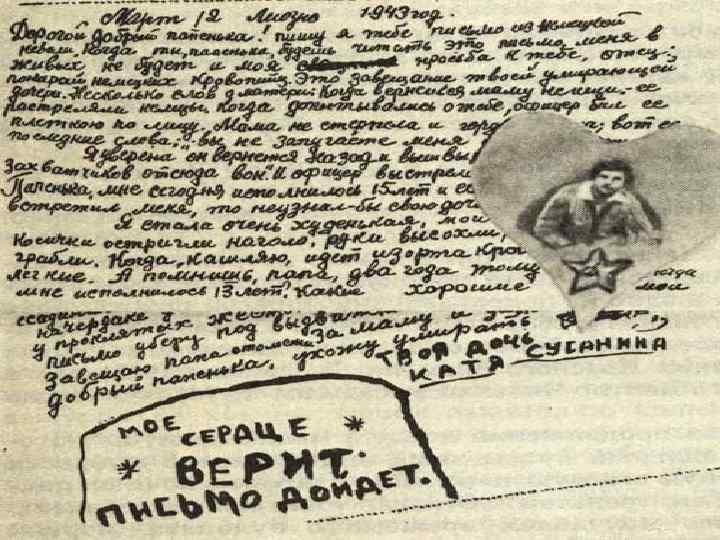 Март 12 Лиозно 1943 год.
Дорогой добрый папенька! пишу я тебе письмо из немецкой
неволи. Когда ты, папенька, будешь читать это письмо, меня в
живых не будет и моя просьба к тебе, отец:
покарай немецких кровопийц. Это завещание твоей умирающей
дочери. Несколько слов о матери: когда вернешься маму не ищи. ее
расстреляли немцы. Когда допытывались о тебе, офицер бил ее
плеткою по лицу. Мама не стерпела и гор вот ее
последние слова: "вы не запугаете меня
Я уверена он вернется назад и вышвы
захватчиков отсюда вон". И офицер выстрел
Папенька, мне сегодня исполнилось 15 лет и ес
встретил меня, то не узнал-бы свою доч
Я стала очень худенькая, мои
косички остригли наголо, руки высохли,
грабли. Когда, кашляю, идет изорта кро
легкие. А помнишь, папа, два года тому когда
мне исполнилось 13 лет? Какие хорошие мои
на чердаке
у проклятых
письмо уберу под
Завещаю папа отомсти за маму и
добрый папенька, ухожу умирать
ТВОЯ ДОЧЬ
КАТЯ СУСАНИНА
МОЕ
СЕРДЦЕ
ВЕРИТ.
ПИСЬМО ДОЙДЕТ.